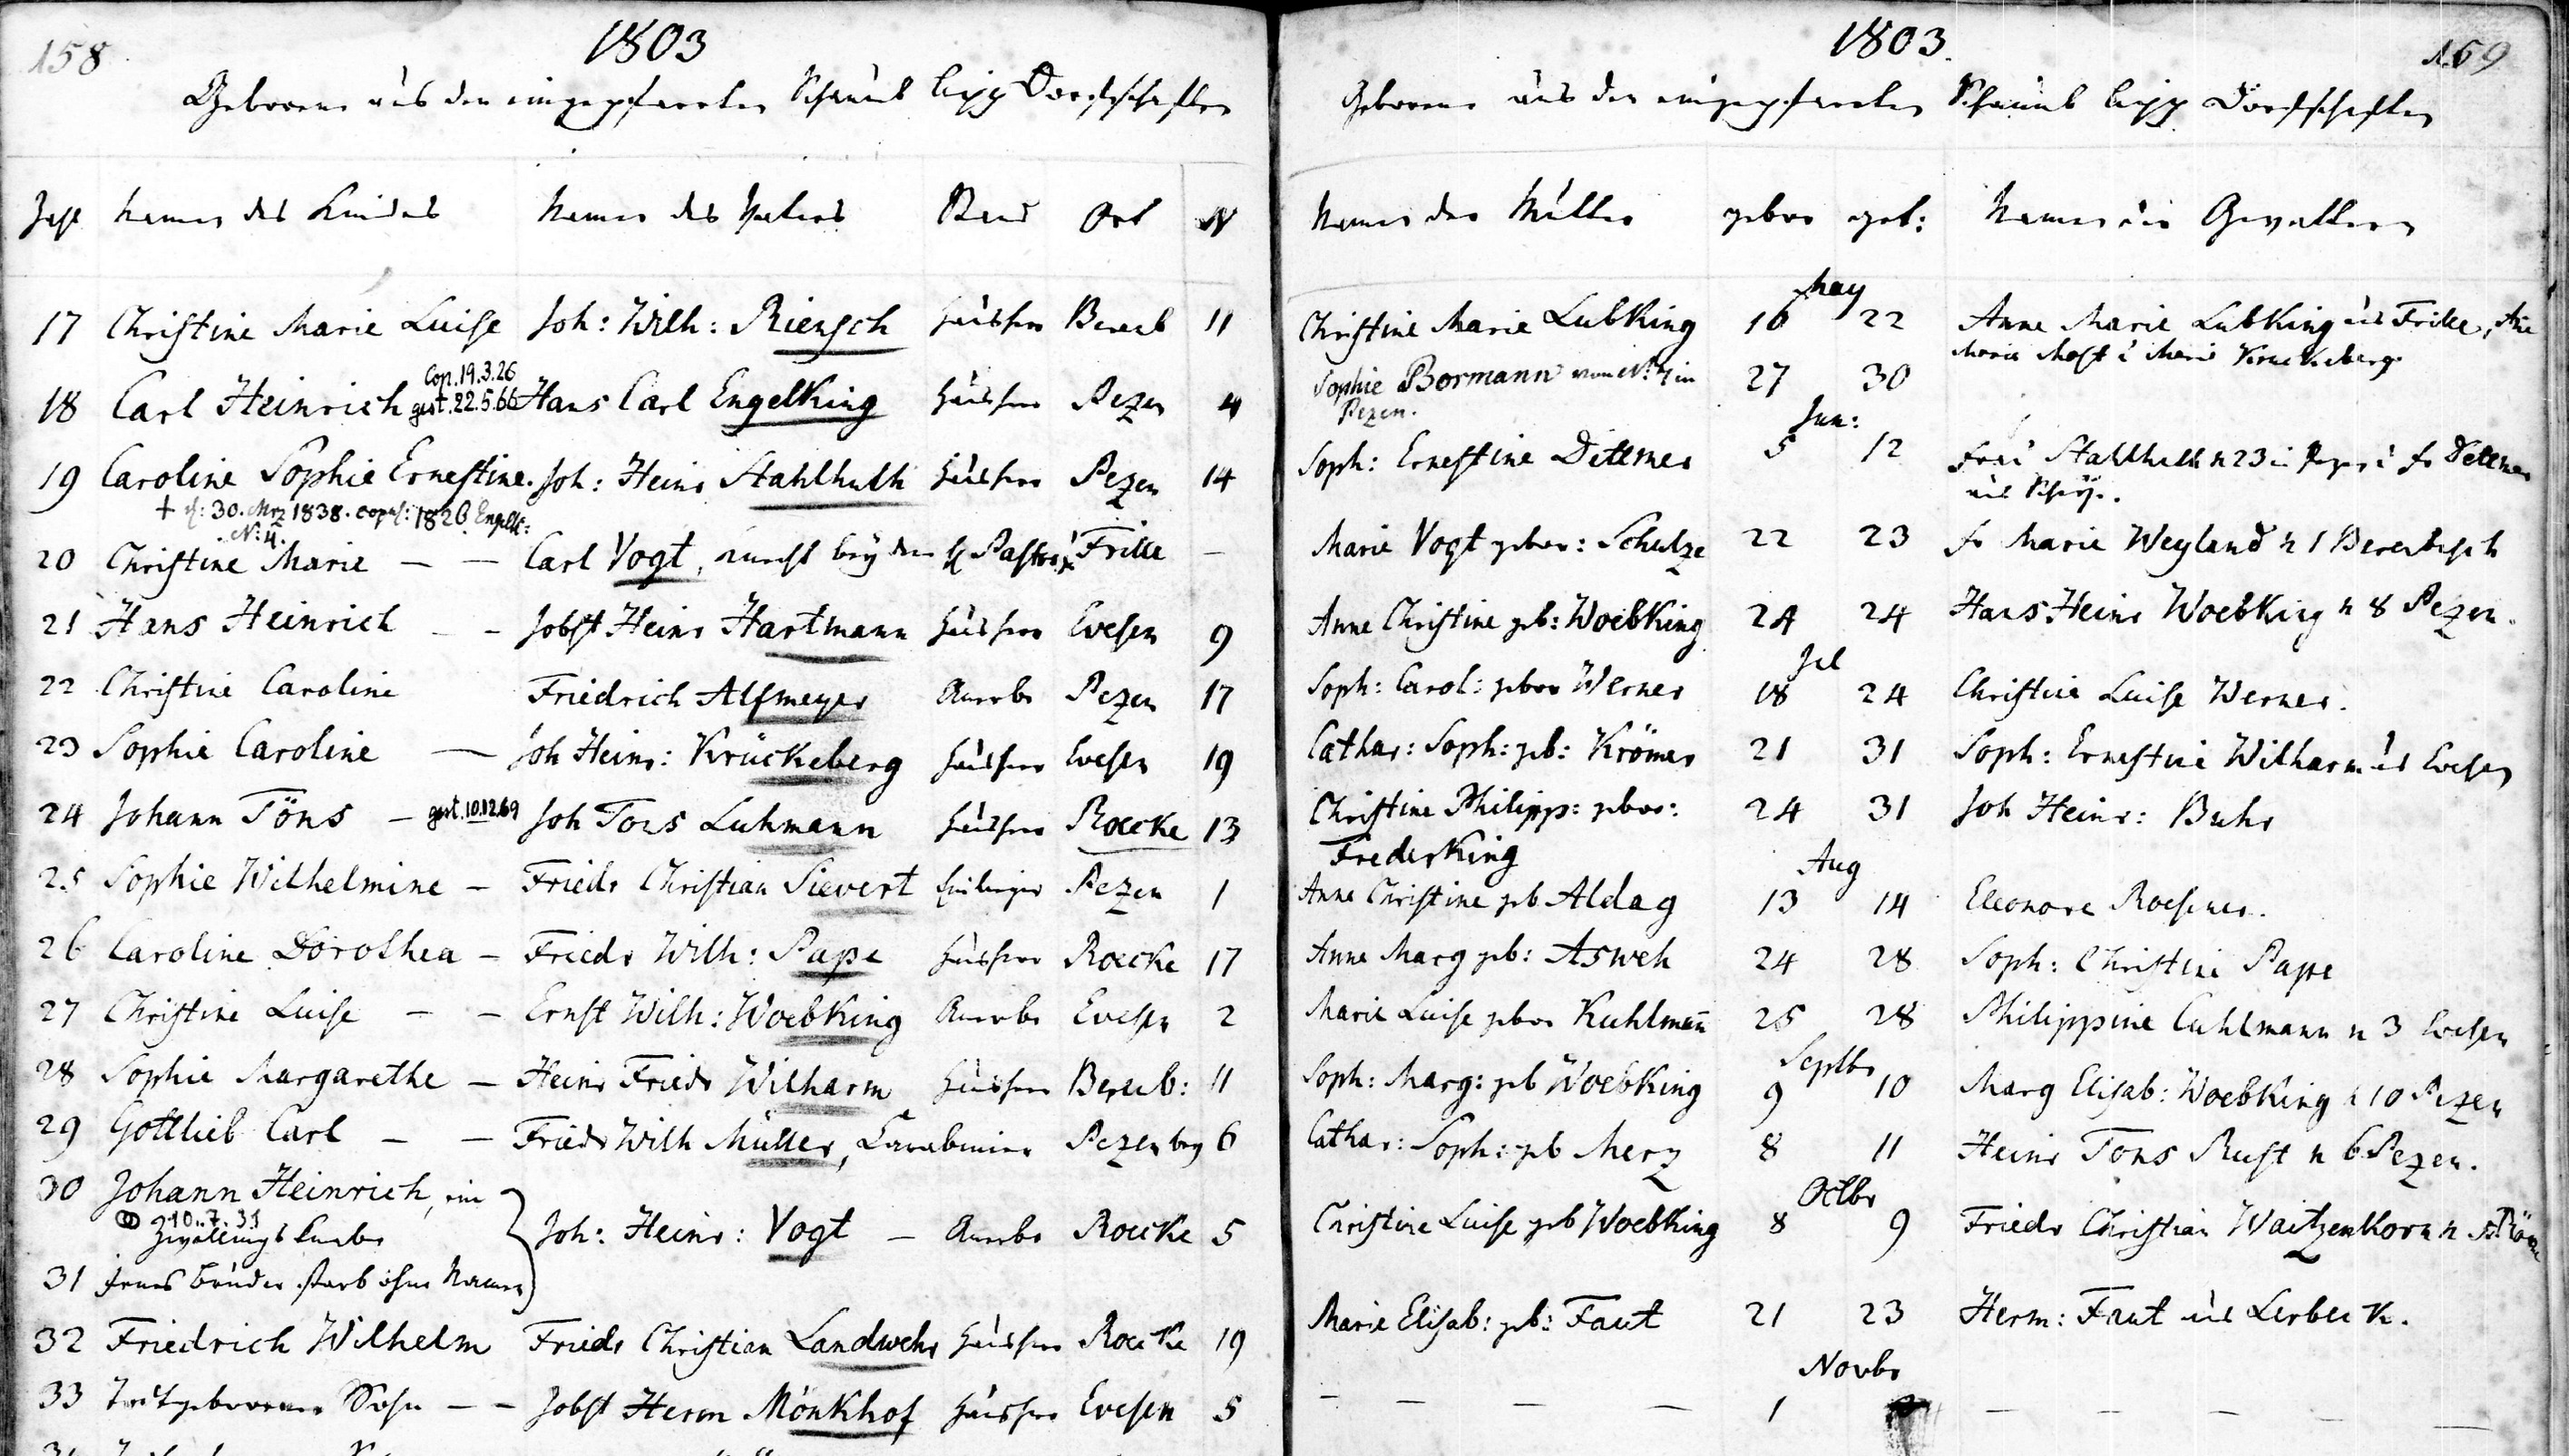 158
1803
Geborene aus den eingepfarrten Schaumb Lipp Dorfschaften
Zahl Namen des Kindes Namen des Vaters Stand Ort N
17 Christine Marie Luise Joh: Wilh: Riensch Häusher Berenb 11
Cop. 19.3.26
18 Carl Heinrich gest. 22.5.66 Hans Carl Engelking Häusher Pezen 4
19 Caroline Sophie Ernestine. Joh: Heinr Stahlhuth Häusher Pezen 14
+ d: 30. Mrz 1838. copul: 1826 Engelk:
N: 4.
20 Christine Marie — — Carl Vogt, bey dem H Pastor Frille —
21 Hans Heinrich — — Jobst Heinr Hartmann Häusher Evesen 9
22 Christine Caroline Friedrich Alfmeyer Pezen 17
23 Sophie Caroline — Joh Heinr: Krückeberg Häusher Evesen 19
24 Johann Töns — gest. 10.12.69 Joh Tons Luhmann Häusher Roecke 13
25 Sophie Wilhelmine — Friedr Christian Sievert Einlieger Pezen 1
26 Caroline Dorothea — Friedr Wilh: Pape Häusher Roecke 17
27 Christine Luise — — Ernst Wilh: Woebking Evesen 2
28 Sophie Margarethe — Heinr Friedr Wilharm Häusher Berenb: 11
29 Gottlieb Carl — — Friedr Wilh Müller, Carabinier Pezen bey 6
30 Johann Heinrich, ein
∞ 10.7.31
Zwillings Knabe Joh: Heinr: Vogt — Roecke 5
31 jenes Bruder starb ohne Namen
32 Friedrich Wilhelm Friedr Christian Landwehr Häusher Roecke 19
33 Todtgeborener Sohn — — Jobst Herm Mönkhof Häusher Evesen 5
1803.
159
Geborene aus den eingepfarrten Schaumb Lipp Dorfschaften
Namen der Mutter gebor get: Namen der Gevattern
May
Christine Marie Lubking 16 22 Anne Marie Lubking aus Frille, Ane
Marie Most u Marie Kruckeberg
Sophie Bormann von No 4 in 27 30
Pezen.
Jun:
Soph: Ernestine Dettmer 5 12 Frau Stahlhuth n 23 in Pezen u Fr Dettmer
aus
Marie Vogt gebor: Schulze 22 23 Fr Marie Weyland n 1 Berenbusch
Anne Christine geb: Woebking 24 24 Hans Heinr Woebking n 8 Pezen.
Jul
Soph: Carol: gebor Werner 18 24 Christine Luise Werner.
Cathar: Soph: geb: Krömer 21 31 Soph: Ernestine Wilharm aus Evesen
Christine Philipp: gebor: 24 31 Joh Heinr: Buhr
Frederking
Aug
Anne Christine geb Aldag 13 14 Eleonore Roesener.
Anne Marg geb: Asweh 24 28 Soph: Christine Pape
Marie Luise gebor Kuhlmañ 25 28 Philippine Cuhlmann n 3 Evesen
Septbr
Soph: Marg: geb Woebking 9 10 Marg Elisab: Woebking n 10 Pezen
Cathar: Soph: geb Merz 8 11 Heinr Tons Rust n 6 Pezen.
Octbr
Christine Luise geb Woebking 8 9 Friedr Christian Waitzenkorn n
Marie Elisab: geb: Faut 21 23 Herm: Faut aus Lerbeck.
Novbr
— — — — 1 — — — — —